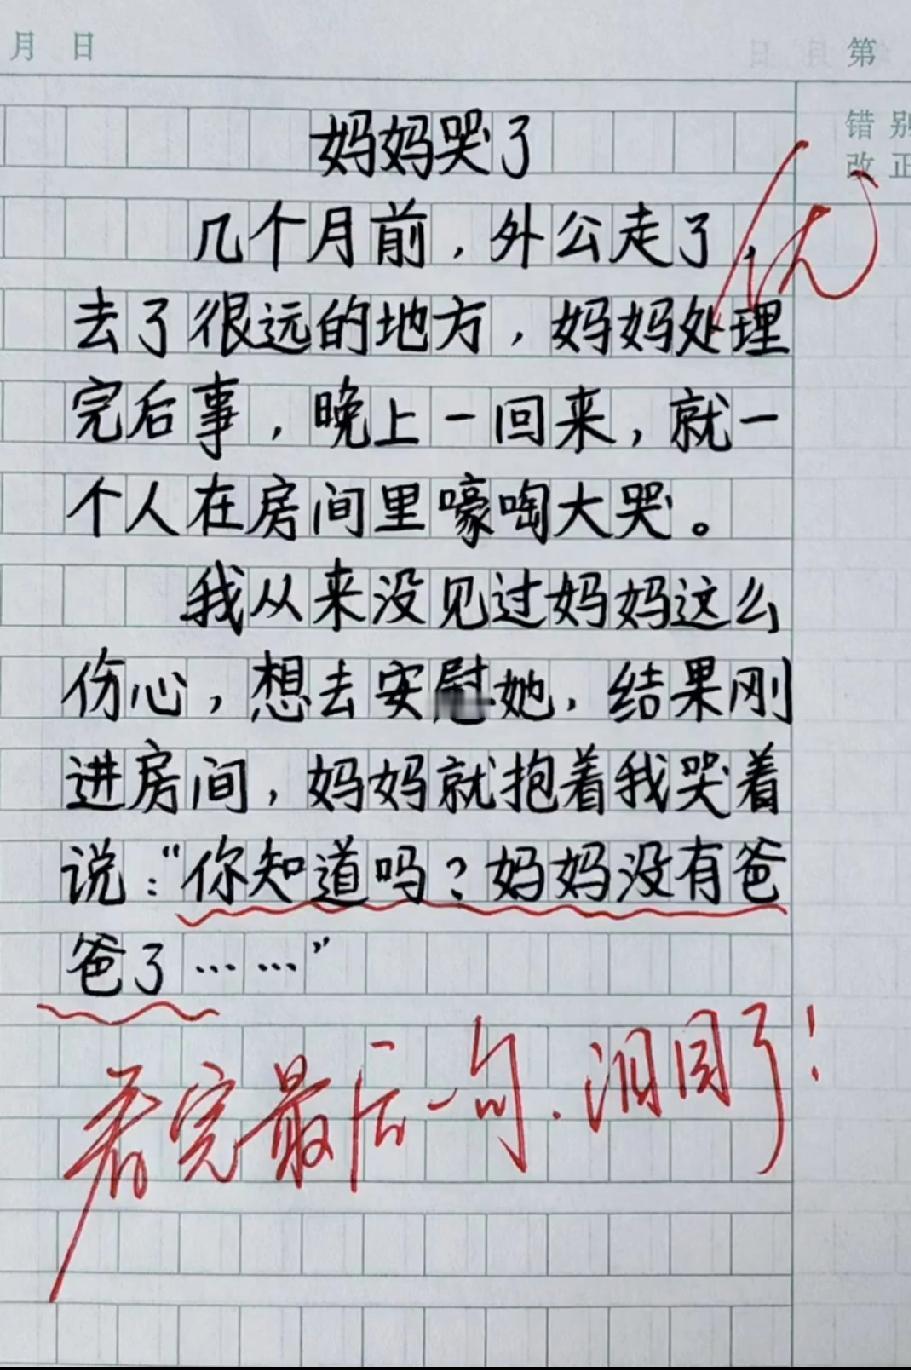 月 日
第
错别
改正
妈妈哭了
优
几个月前，外公走了，
去了很远的地方，妈妈处理
完后事，晚上一回来，就一
个人在房间里嚎啕大哭。
我从来没见过妈妈这么
伤心，想去安慰她，结果刚
进房间，妈妈就抱着我哭着
说：“你知道吗？妈妈没有爸
爸了……”
看完最后一句，泪目了！